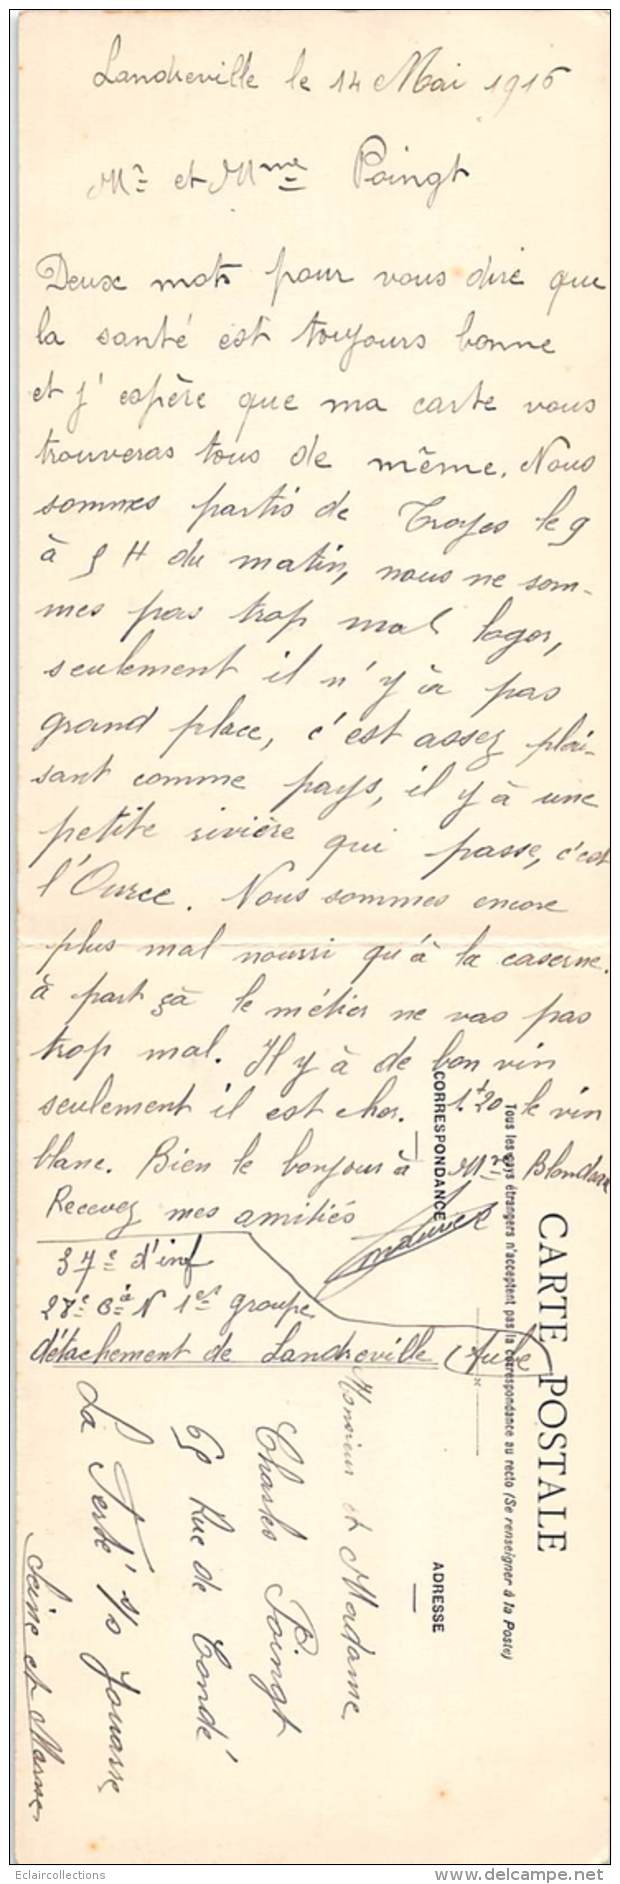 Landreville le 14 Mai 1916
Mr et Mme Poingt
Deux mots pour vous dire que
la santé est toujours bonne
et j'espère que ma carte vous
trouveras tous de même. Nous
sommes partis de Troyes le 9
à 5 H du matin, nous ne som-
mes pas trop mal loger,
seulement il n'y à pas
grand place, c'est assez plai-
sant comme pays, il y à une
petite rivière qui passe, c'est
l'Ource. Nous sommes encore
plus mal nourri qu'à la caserne.
à part çà le métier ne vas pas
trop mal. Il y à de bon vin
seulement il est cher. 1.f20 le vin
blanc. Bien le bonjour à Mr
Recevez mes amitiés
37e d'inf
28e Cie N 1er groupe
détachement de Landreville (Aube)
CARTE POSTALE
Tous les pays étrangers n'acceptent pas la correspondance au recto (Se renseigner à la Poste)
CORRESPONDANCE
ADRESSE
Monsieur et Madame
Charles Poingt
65 Rue de Condé
La Ferté s/s Jouarre
Seine et Marne
Eclaircollections
delcampe.net